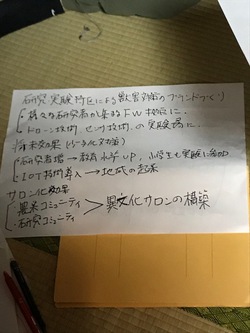 研究実験特区による獣害対策のブランドづくり
・様々な研究者が集まるFW拠点に.
・ドローン技術、センサ技術、の実験場に.
将来効果(トータル対策)
・研究者増→教育水準UP, 小学生も実験に参加
・IOT技術導入→地域の起業
サロン化効果
・農業コミュニティ
・研究コミュニティ
>異文化サロンの構築